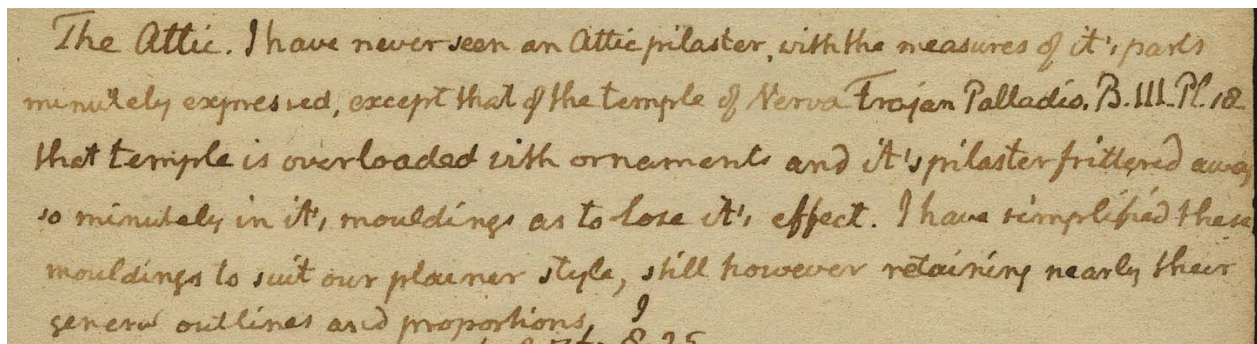 The Attic. I have never seen an Attic pilaster, with the measures of it's parts
minutely expressed, except that of the temple of Nerva Trajan Palladio. B.III. Pl. 18
that temple is overloaded with ornaments and it's pilaster frittered away
so minutely in it's mouldings as to lose it's effect. I have simplified these
mouldings to suit our plainer style, still however retaining nearly their
general outlines and proportions,